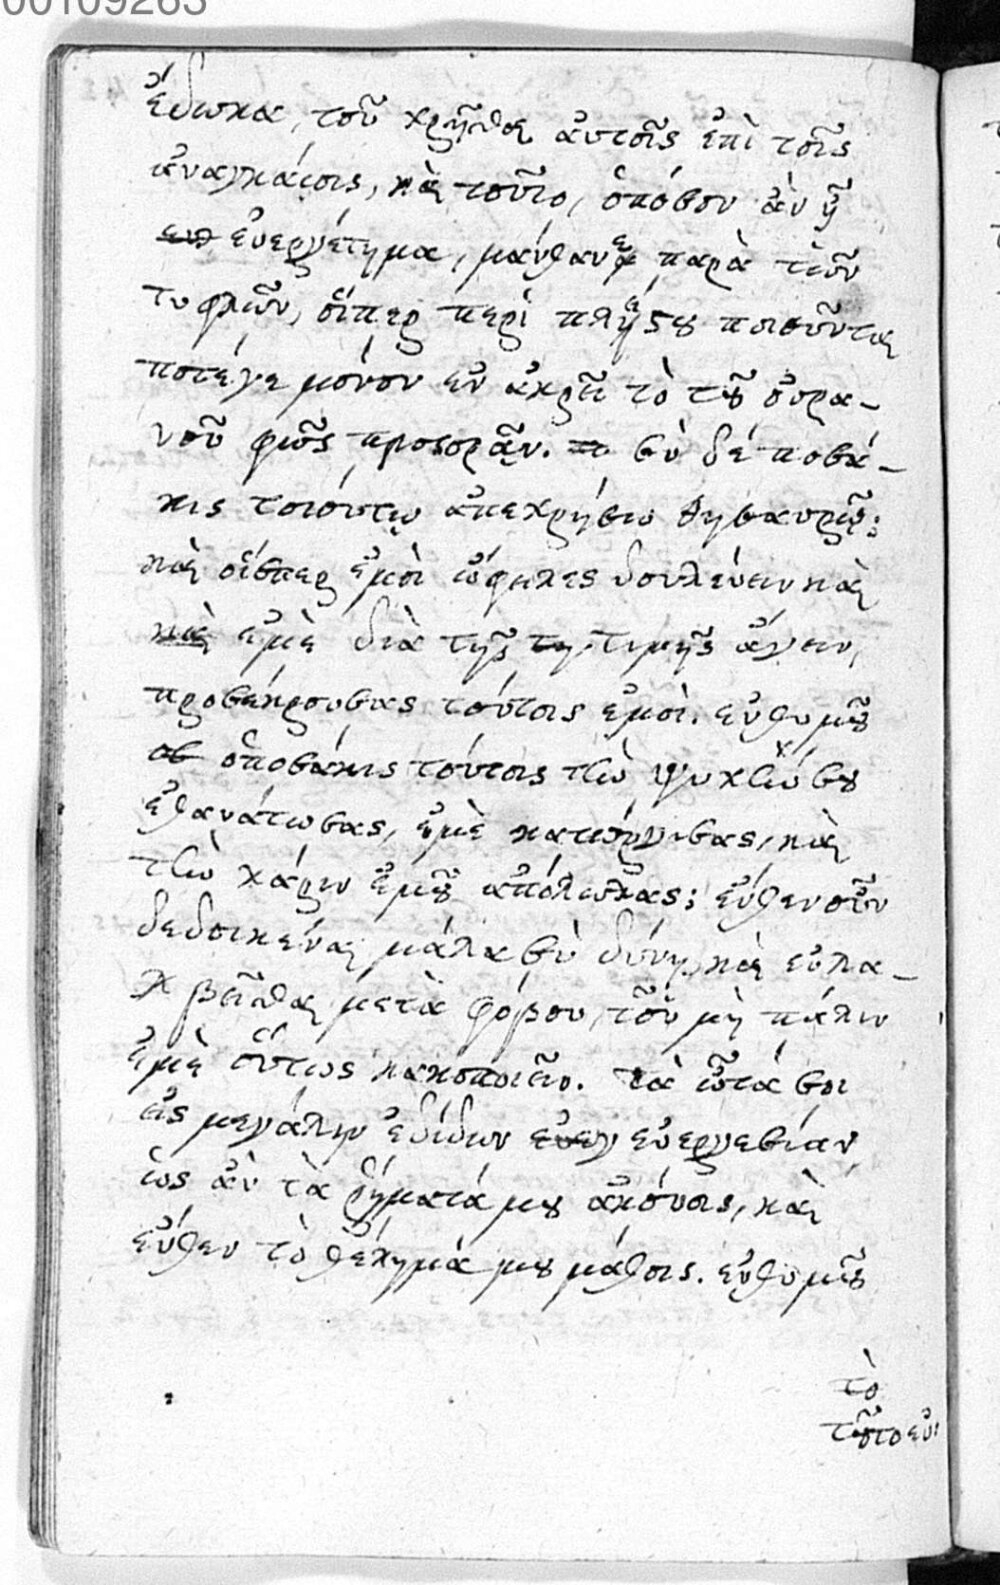 00109263
ἔδωκα, τοῦ χρῆσθαι αὐτοῖς ἐπὶ τοῖς
ἀναγκαίοις, καὶ τοῦτο, ὁπόσον ἂν ᾖ
εὐεργέτημα, μάνθανε παρὰ τῶν
τυφλῶν, οἵπερ περὶ πλείστου ποιοῦνται
ποτέγε μόνον ἐν ἀκρεῖ τὸ τοῦ οὐρα-
νοῦ φῶς προσορᾷν. σὺ δέ ποσά-
κις τοιούτῳ ἀπεχρήσω θησαυρῷ;
καὶ οἵσπερ ἐμοὶ ὤφειλες δουλεύειν καὶ
καὶ ἐμὲ διὰ τῆς τη τιμῆς ἄγειν,
προσέκρουσας τούτοις ἐμοὶ. ἐνθυμοῦ
ὁποσάκις τούτοις τὴν ψυχήν σου
ἐθανάτωσας, ἐμὲ κατώργισας, καὶ
τὴν χάριν ἐμοῦ ἀπόλωλας; ἔνθεν οὖν
δεδοικέναι μάλα σὺ δύνῃ, καὶ εὐλα-
βεῖσθαι μετὰ φόβου, τοῦ μὴ πάλιν
ἐμὲ οὕτως κακοποιεῖν. Τὰ ὦτά σοι
εἰς μεγάλην ἐδίδων εὐεργεσίαν
ὡς ἂν τὰ ῥήματά μου ἀκούοις, καὶ
ἔνθεν τὸ θέλημά μου μάθοις. ἐνθυμοῦ
τὸ
τοῦτο εὐ